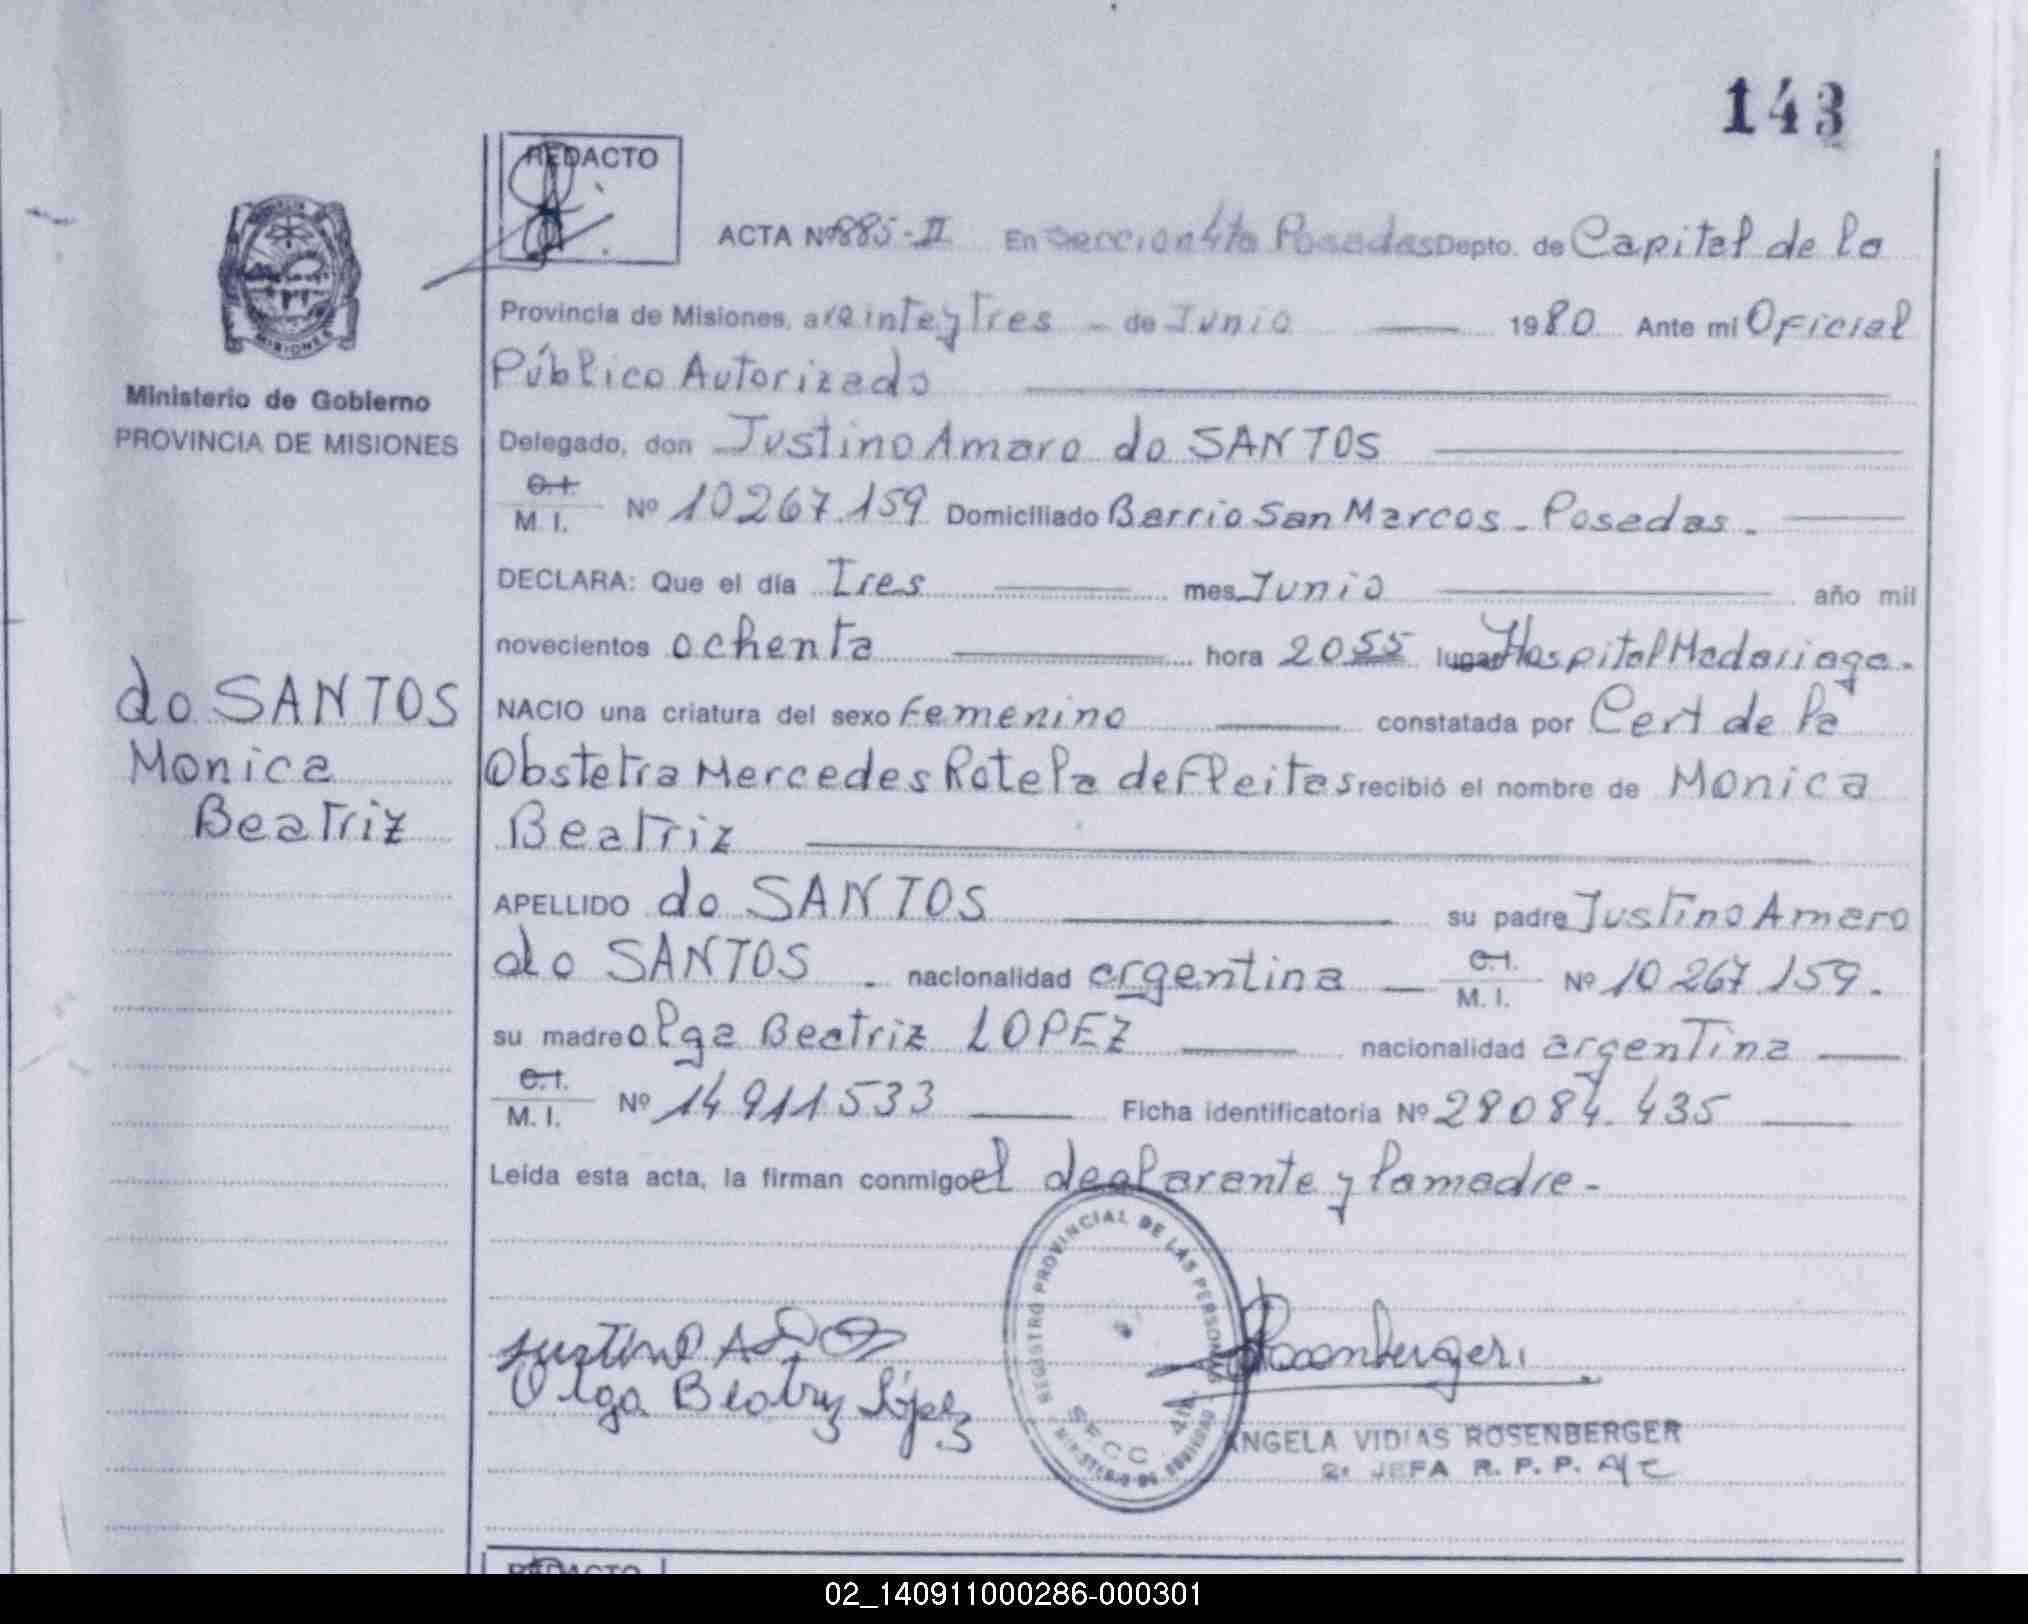 143
REDACTO
ACTA Nº 885-II En Seccion 4ta Posadas Depto. de Capital de la
Provincia de Misiones, a veinteytres - de Junio 1980 Ante mi Oficial
Público Autorizado
Delegado, don Justino Amaro do SANTOS
C.I.
M. I. Nº 10267.159 Domiciliado Barrio San Marcos - Posadas -
DECLARA: Que el día Tres mes Junio año mil
novecientos ochenta hora 2055 lugar Hospital Madariaga.
NACIO una criatura del sexo Femenino constatada por Cert de la
Obstetra Mercedes Rotela de Fleitas recibió el nombre de Monica
Beatriz
APELLIDO do SANTOS su padre Justino Amaro
do SANTOS - nacionalidad argentina - C.I.
M. I. Nº 10267.159.
su madre olga Beatriz LOPEZ nacionalidad argentina
C.I.
M. I. Nº 14911533 Ficha identificatoria Nº 28084.435
Leída esta acta, la firman conmigo el declarante y la madre -
MISIONES
Ministerio de Gobierno
PROVINCIA DE MISIONES
do SANTOS
Monica
Beatriz
Justino A
Olga Beatriz López
REGISTRO PROVINCIAL DE LAS PERSONAS
SECC. 4ta
MINISTERIO DE GOBIERNO
Rosenberger
ANGELA VIDIAS ROSENBERGER
2º JEFA R. P. P. A/C
REDACTO
02_140911000286-000301